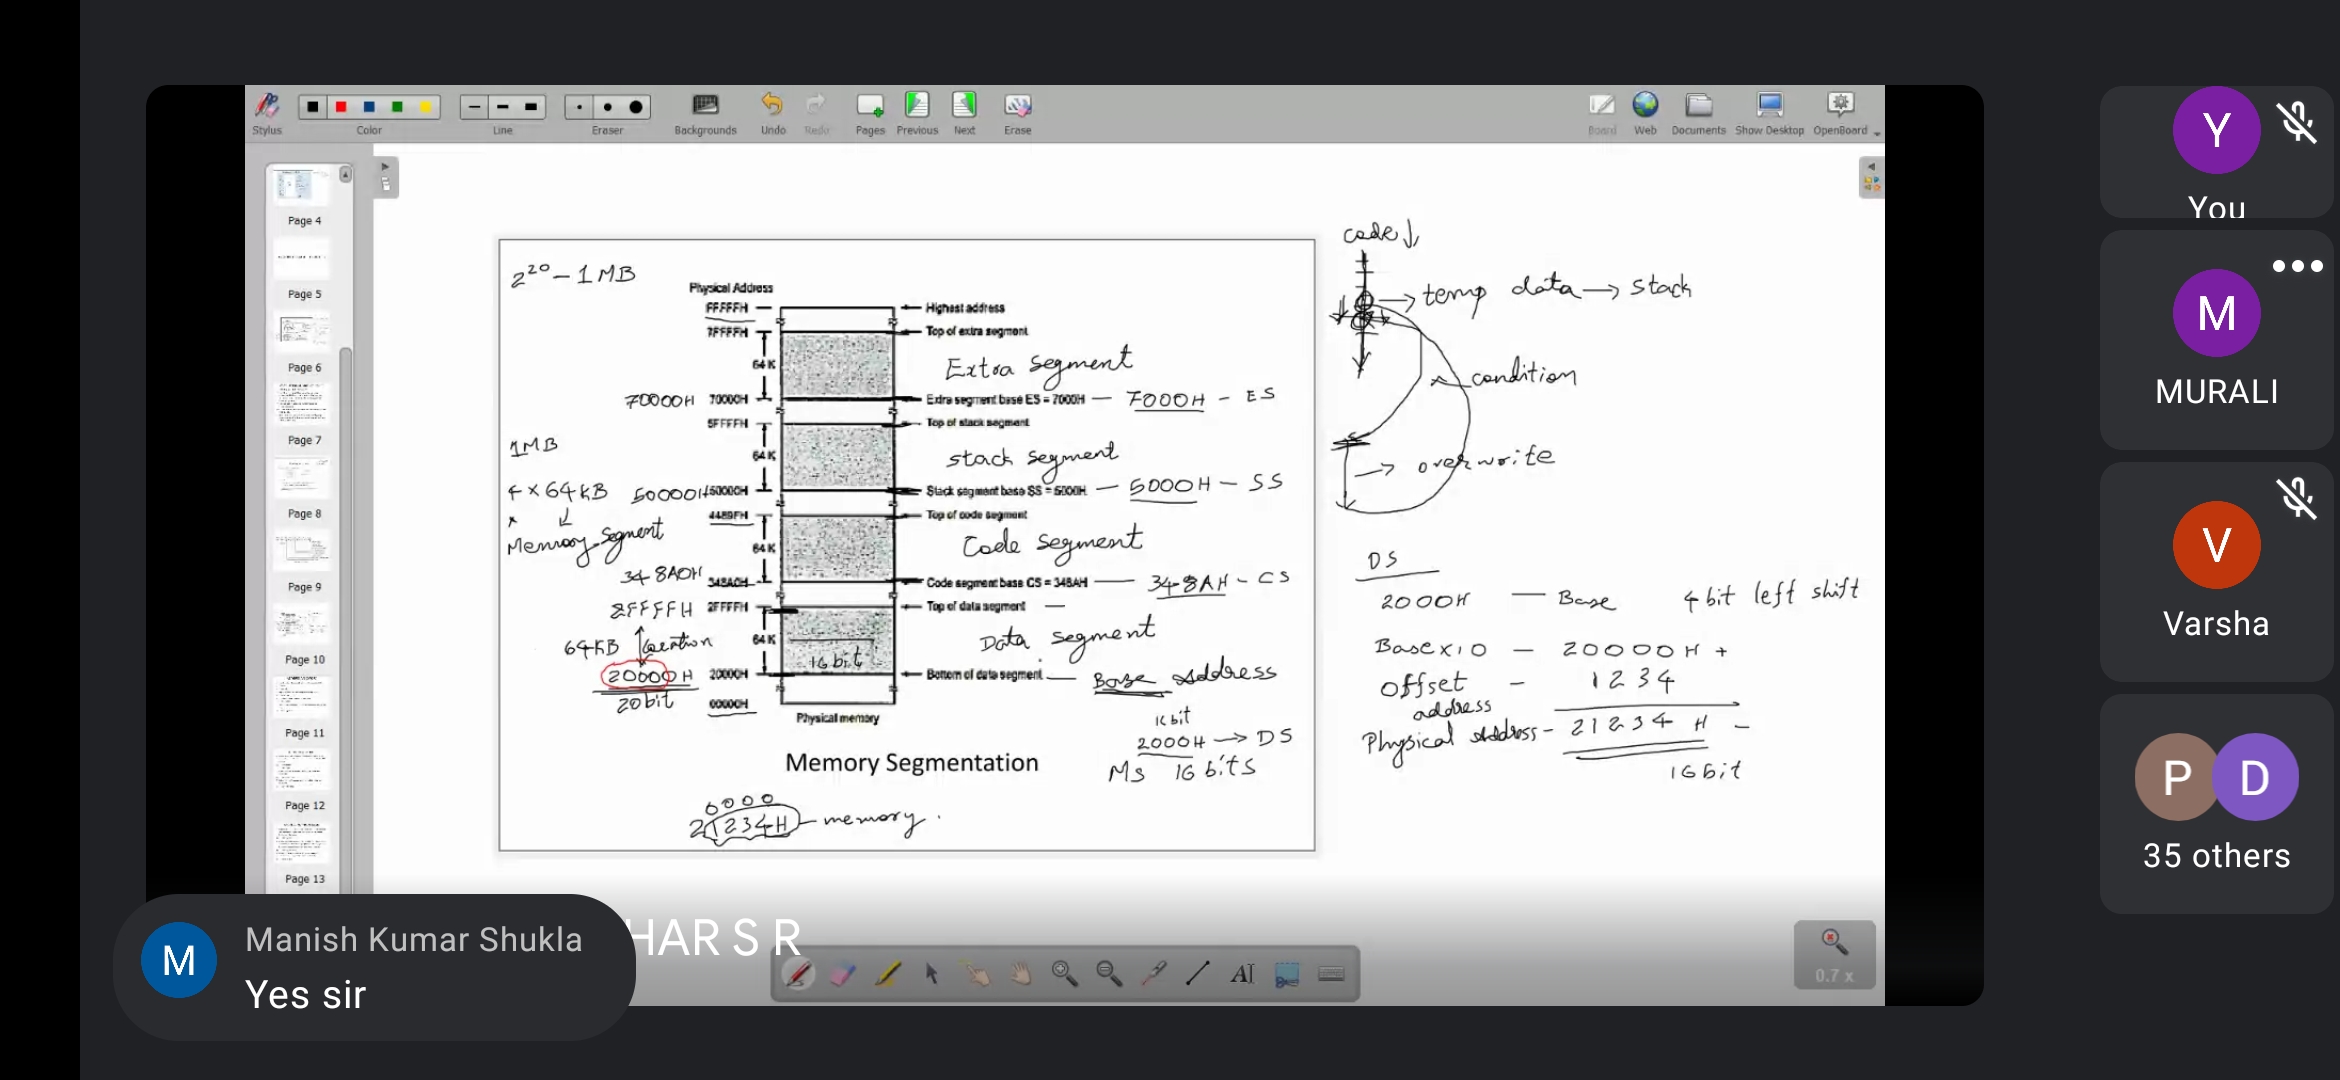 Stylus
Color
Line
Eraser
Backgrounds
Undo
Redo
Pages
Previous
Next
Erase
Board
Web
Documents
Show Desktop
OpenBoard
Page 4
Page 5
Page 6
Page 7
Page 8
Page 9
Page 10
Page 11
Page 12
Page 13
2²⁰ – 1 MB
Physical Address
FFFFFH
Highest address
7FFFFH
Top of extra segment
64 K
Extra segment
70000H 70000H
Extra segment base ES = 7000H — 7000H - ES
5FFFFH
Top of stack segment
1MB
64 K
stack segment
4 x 64 KB
50000H 50000H
Stack segment base SS = 5000H — 5000H – SS
4489FH
Top of code segment
Memory segment
64 K
Code segment
348A0H 348A0H
Code segment base CS = 348AH — 348AH - CS
2FFFFH 2FFFFH
Top of data segment —
64KB location
64 K
16 bit
Data segment
20000H 20000H
Bottom of data segment — Base Address
20 bit
00000H
Physical memory
16 bit
2000H → DS
Memory Segmentation
MS 16 bits
0000
21234H – memory.
code ↓
→ temp data → stack
condition
→ overwrite
DS
2000H — Base 4 bit left shift
Base x 10 — 20000H +
offset address – 1234
Physical Address – 21234 H –
16 bit
HAR S R
M
Manish Kumar Shukla
Yes sir
AI
0.7 x
Y
You
M
MURALI
V
Varsha
P D
35 others